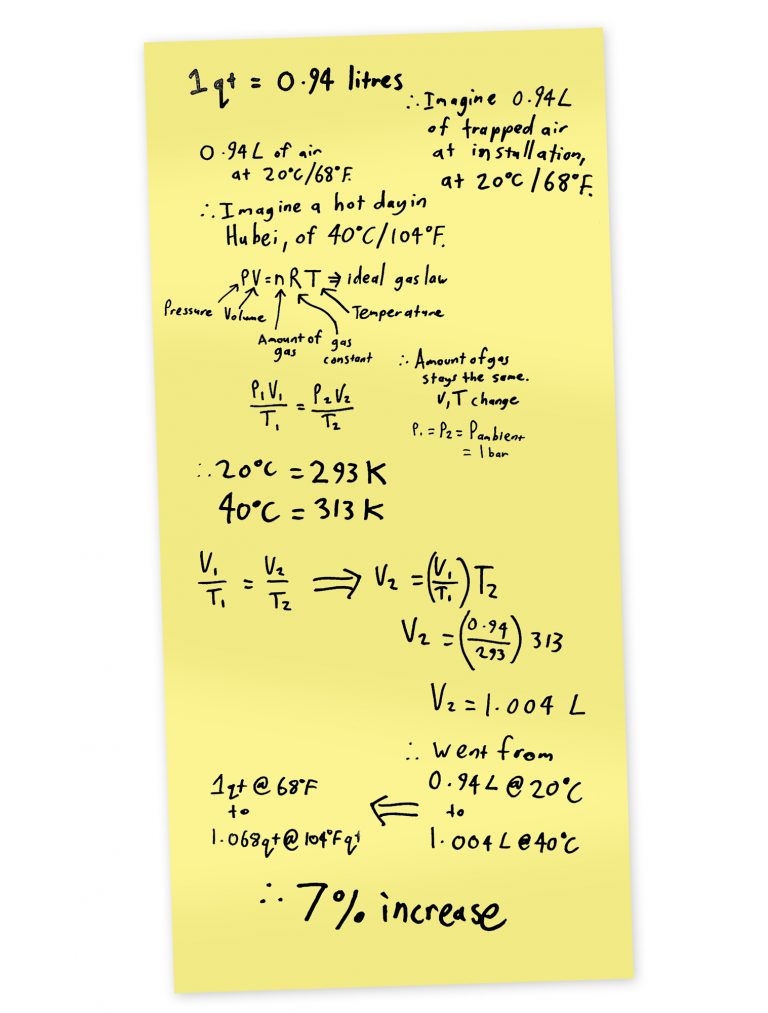 1qt = 0.94 litres
∴ Imagine 0.94L
of trapped air
at installation,
at 20°C/68°F.
0.94L of air
at 20°C/68°F.
∴ Imagine a hot day in
Hubei, of 40°C/104°F.
PV=nRT ⇒ ideal gas law
Pressure Volume Temperature
Amount of gas
gas constant
∴ Amount of gas
stays the same.
V,T change
P₁V₁/T₁ = P₂V₂/T₂
P₁ = P₂ = Pambient
= 1 bar
∴ 20°C = 293 K
40°C = 313 K
V₁/T₁ = V₂/T₂ ⟹ V₂ = (V₁/T₁) T₂
V₂ = (0.94/293) 313
V₂ = 1.004 L
∴ Went from
0.94L@20°C
to
1.004L@40°C
1qt@68°F
to
1.068qt@104°Fqt
∴ 7% increase